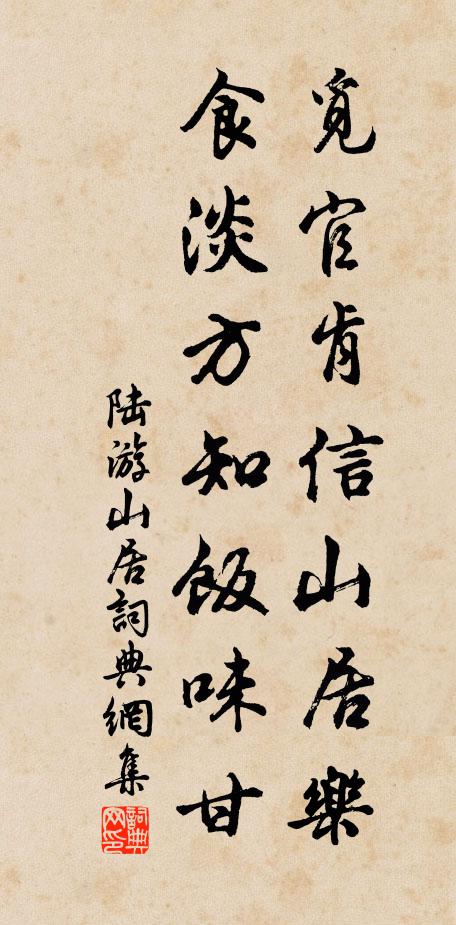 覓官肯信山居樂
食淡方知飯味甘
陸游山居詞典網集
詞典网印